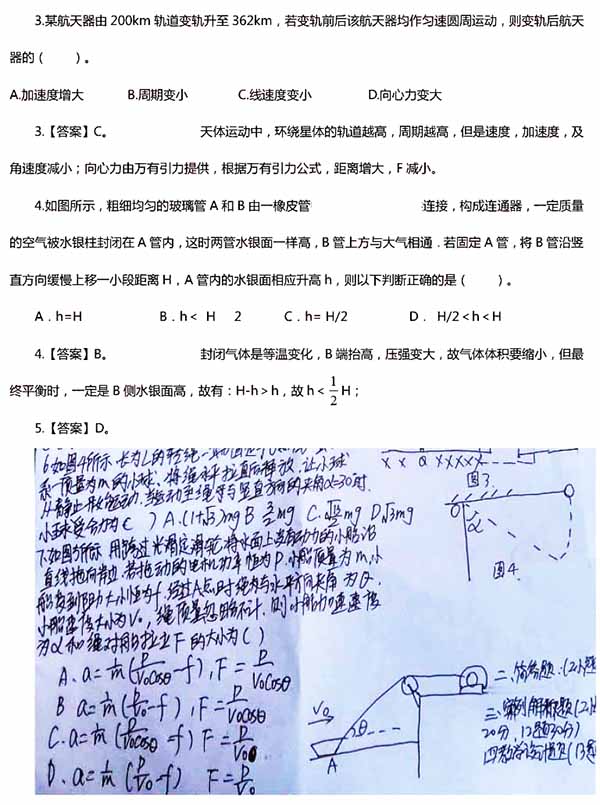 3.某航天器由 200km 轨道变轨升至 362km，若变轨前后该航天器均作匀速圆周运动，则变轨后航天
器的（ ）。
A.加速度增大 B.周期变小 C.线速度变小 D.向心力变大
3.【答案】C。 天体运动中，环绕星体的轨道越高，周期越高，但是速度，加速度，及
角速度减小；向心力由万有引力提供，根据万有引力公式，距离增大，F 减小。
4.如图所示，粗细均匀的玻璃管 A 和 B 由一橡皮管 连接，构成连通器，一定质量
的空气被水银柱封闭在 A 管内，这时两管水银面一样高，B 管上方与大气相通．若固定 A 管，将 B 管沿竖
直方向缓慢上移一小段距离 H，A 管内的水银面相应升高 h，则以下判断正确的是（ ）。
A．h=H B．h< H 2 C．h= H/2 D． H/2<h<H
4.【答案】B。 封闭气体是等温变化，B 端抬高，压强变大，故气体体积要缩小，但最
终平衡时，一定是 B 侧水银面高，故有：H-h＞h，故 h＜1/2 H；
5.【答案】D。
6.如图4所示，长为L的轻绳一
系一质量为m的小球，将绳水平拉直后释放，让小球
从静止开始运动，当运动至绳子与竖直方向的夹角α=30°时，
小球受合力为( ) A.(1+√3)mg B 3/2 mg C. mg D √3mg
7.如图5所示，用跨过光滑定滑轮将水面上失去动力的小船沿
直线拖向岸边，若拖动的电机功率恒为P，小船质量为m，小
船受到阻力大小恒为f，经过A点时绳为与水平方向夹角为θ，
小船速度大小为V₀，绳质量忽略不计，则小船加速度
为α和绳对船的拉力F的大小为( )
A、a=1/m(P/V₀cosθ-f)，F=P/V₀cosθ
B a=1/m(P/V₀-f)，F=P/V₀cosθ
C、a=1/m(P/V₀cosθ-f) F=P/V₀
D、a=1/m(P/V₀-f) F=P/V₀
X X a XXXXX
图3.
O
α
图4.
V₀
θ
A
二、简答题.(2小题
三、 解释题(2小
20分，12题30分)